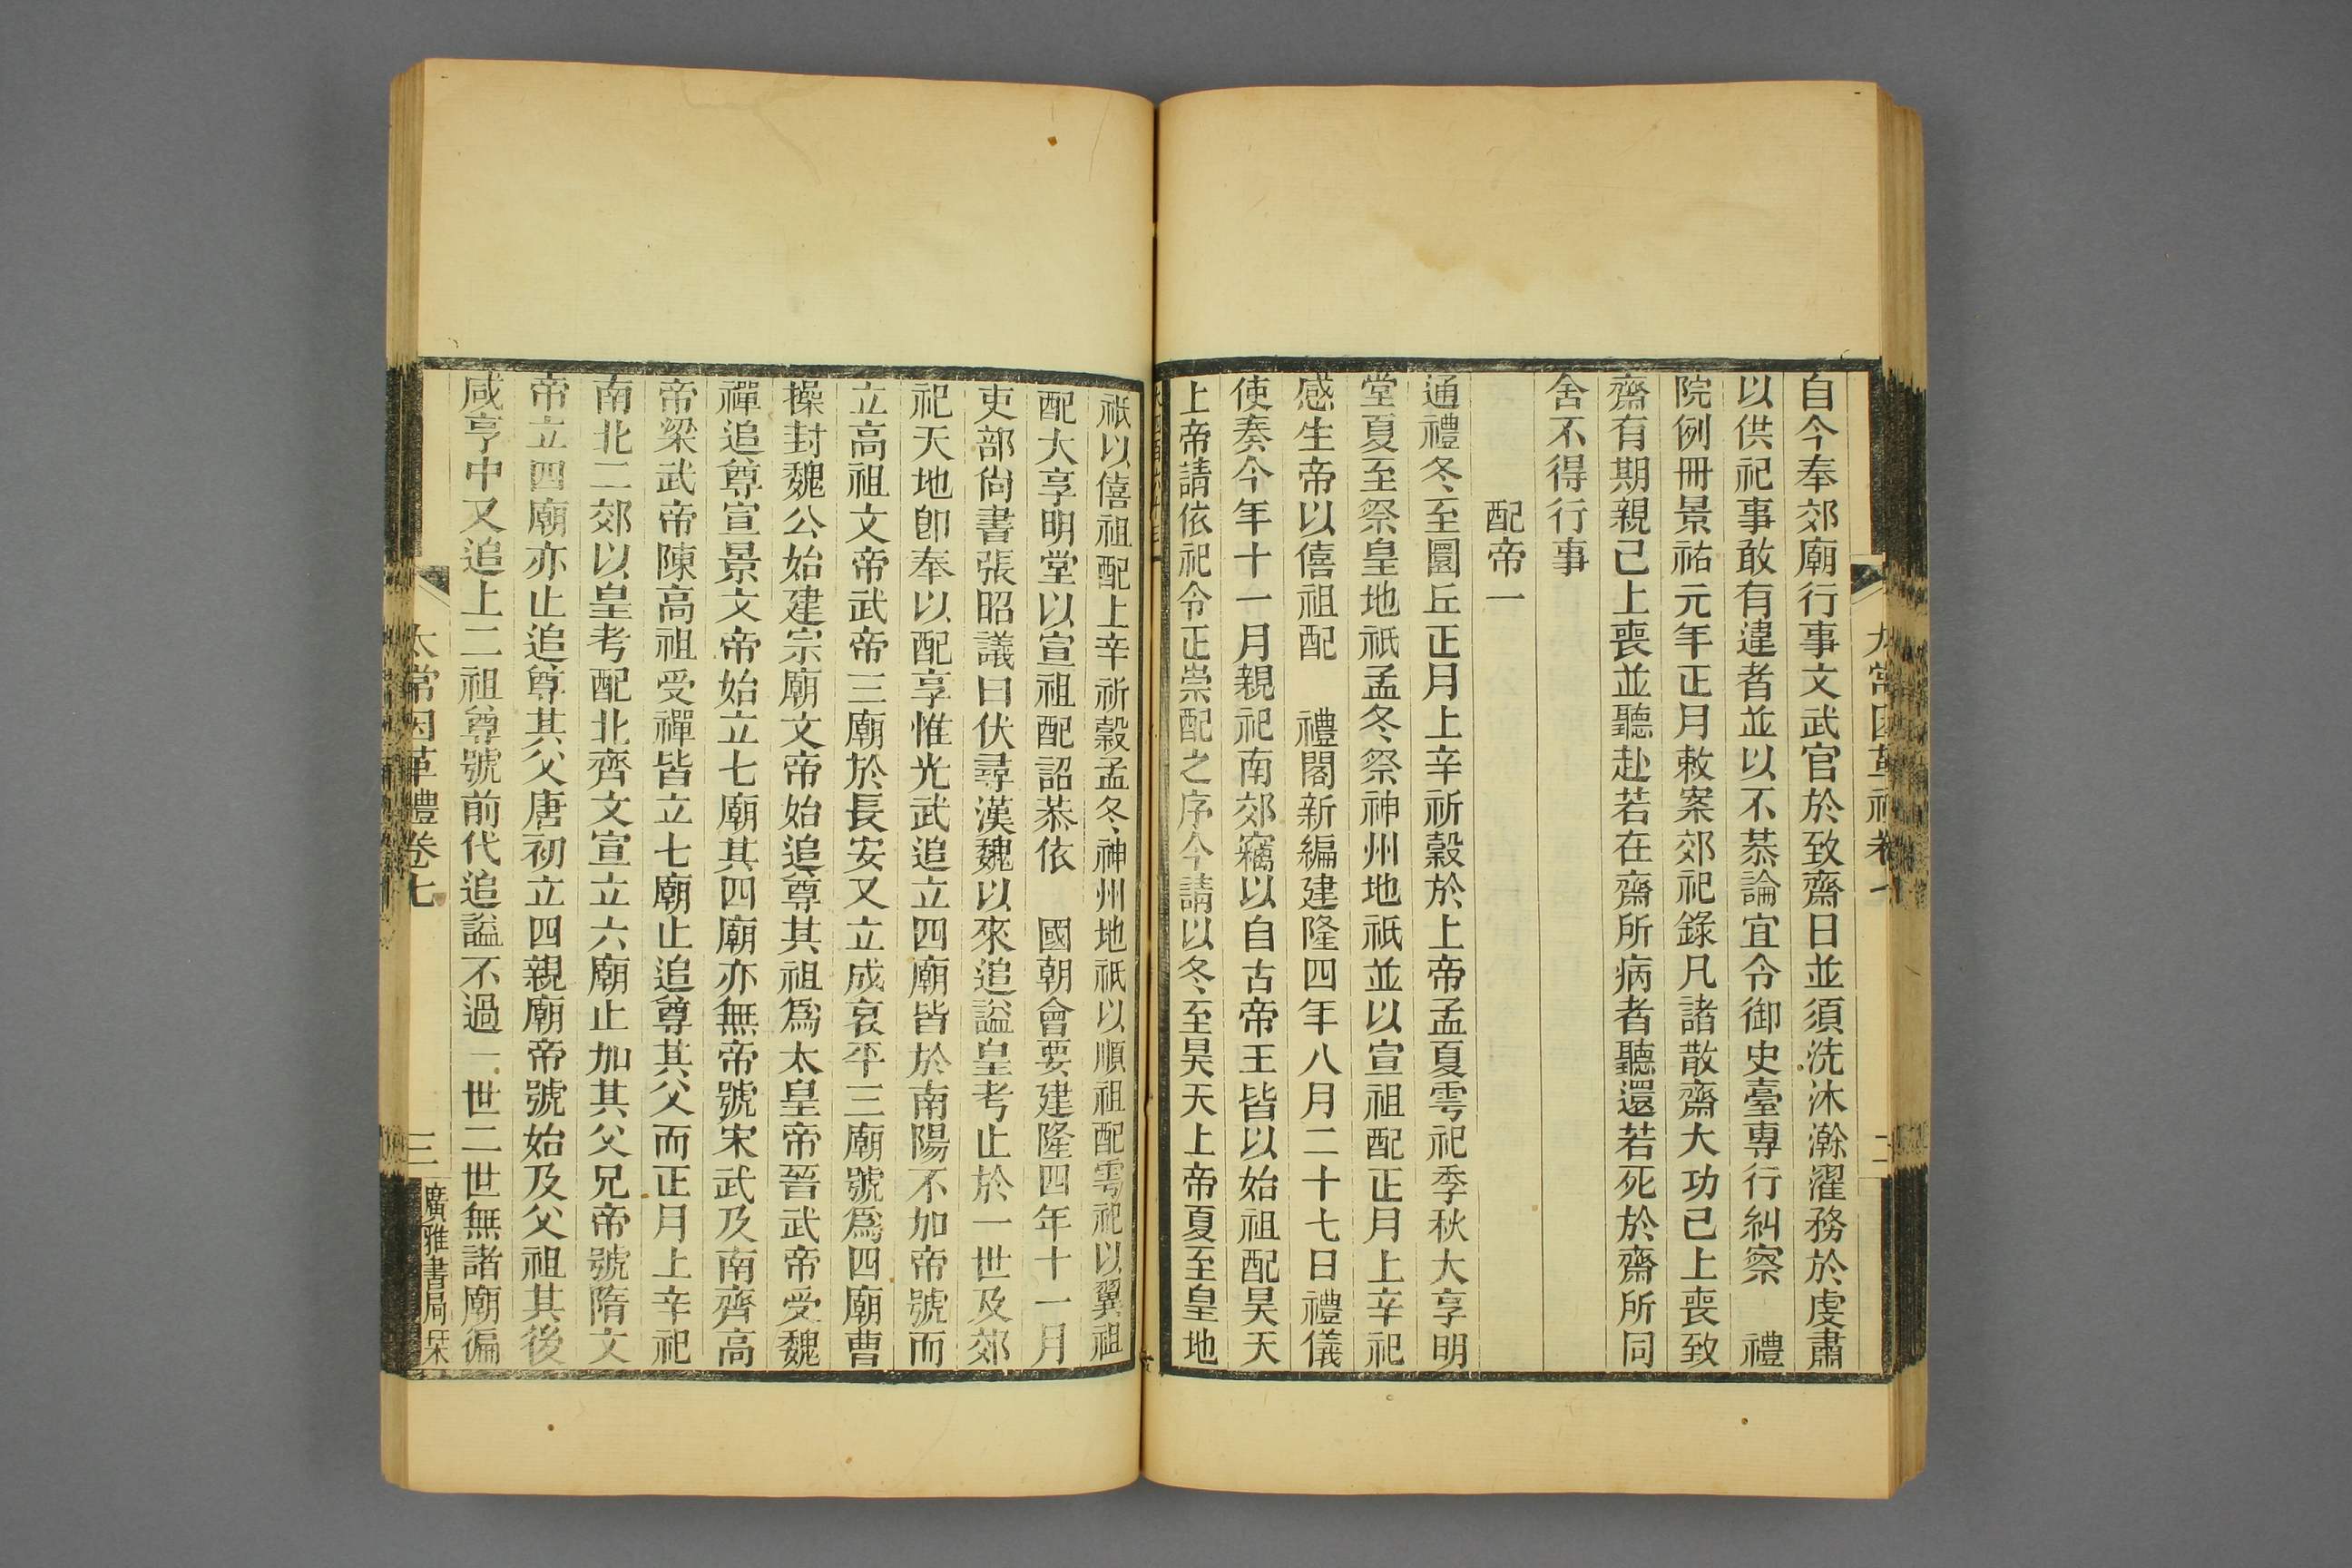 自今奉郊廟行事文武官於致齋日並須洗沐澣濯務於虔肅
以供祀事敢有違者並以不恭論宜令御史臺專行糾察　禮
院例冊景祐元年正月敕案郊祀錄凡諸散齋大功已上喪致
齋有期親已上喪並聽赴若在齋所病者聽還若死於齋所同
舍不得行事
配帝一
通禮冬至圜丘正月上辛祈穀於上帝孟夏雩祀季秋大享明
堂夏至祭皇地祇孟冬祭神州地祇並以宣祖配正月上辛祀
感生帝以僖祖配　禮閣新編建隆四年八月二十七日禮儀
使奏今年十一月親祀南郊竊以自古帝王皆以始祖配昊天
上帝請依祀令正崇配之序今請以冬至昊天上帝夏至皇地
祇以僖祖配上辛祈穀孟冬神州地祇以順祖配雩祀以翼祖
配大享明堂以宣祖配詔恭依　國朝會要建隆四年十一月
吏部尚書張昭議曰伏尋漢魏以來追謚皇考止於一世及郊
祀天地卽奉以配享惟光武追立四廟皆於南陽不加帝號而
立高祖文帝武帝三廟於長安又立成哀平三廟號爲四廟曹
操封魏公始建宗廟文帝始追尊其祖爲太皇帝晉武帝受魏
禪追尊宣景文帝始立七廟其四廟亦無帝號宋武及南齊高
帝梁武帝陳高祖受禪皆立七廟止追尊其父而正月上辛祀
南北二郊以皇考配北齊文宣立六廟止加其父兄帝號隋文
帝立四廟亦止追尊其父唐初立四親廟帝號始及父祖其後
咸亨中又追上二祖尊號前代追謚不過一世二世無諸廟徧
太常因革禮卷七
三
廣雅書局栞